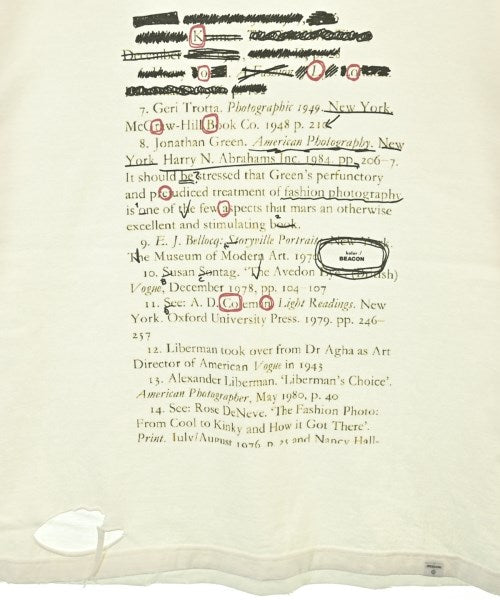 7. Geri Trotta. Photographic 1949. New York,
McGraw-Hill Book Co. 1948 p. 210
8. Jonathan Green. American Photography. New
York. Harry N. Abrahams Inc. 1984. pp. 206-7.
It should be stressed that Green's perfunctory
and prejudiced treatment of fashion photography
is one of the few aspects that mars an otherwise
excellent and stimulating book.
9. E. J. Bellocq: Storyville Portraits. New York.
The Museum of Modern Art.
kolor /
BEACON
10. Susan Sontag. 'The Avedon
Vogue, December 1978, pp. 104-107
11. See: A. D. Coleman. Light Readings. New
York. Oxford University Press. 1979. pp. 246-
257
12. Liberman took over from Dr Agha as Art
Director of American Vogue in 1943
13. Alexander Liberman. 'Liberman's Choice'.
American Photographer, May 1980, p. 40
14. See: Rose DeNeve. 'The Fashion Photo:
From Cool to Kinky and How it Got There'.
Print. July/August 1976 p. 25 and Nancy Hall-